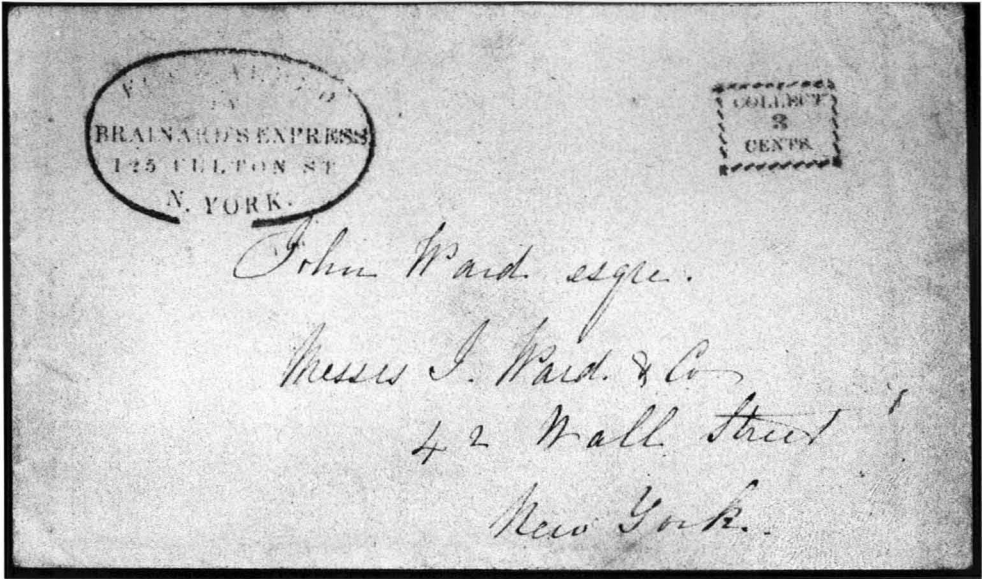 FORWARDED
BY
BRAINARD'S EXPRESS
125 FULTON ST
N. YORK.
COLLECT
3
CENTS
John Ward esqre.
Messrs J. Ward & Co
42 Wall Street
New York.